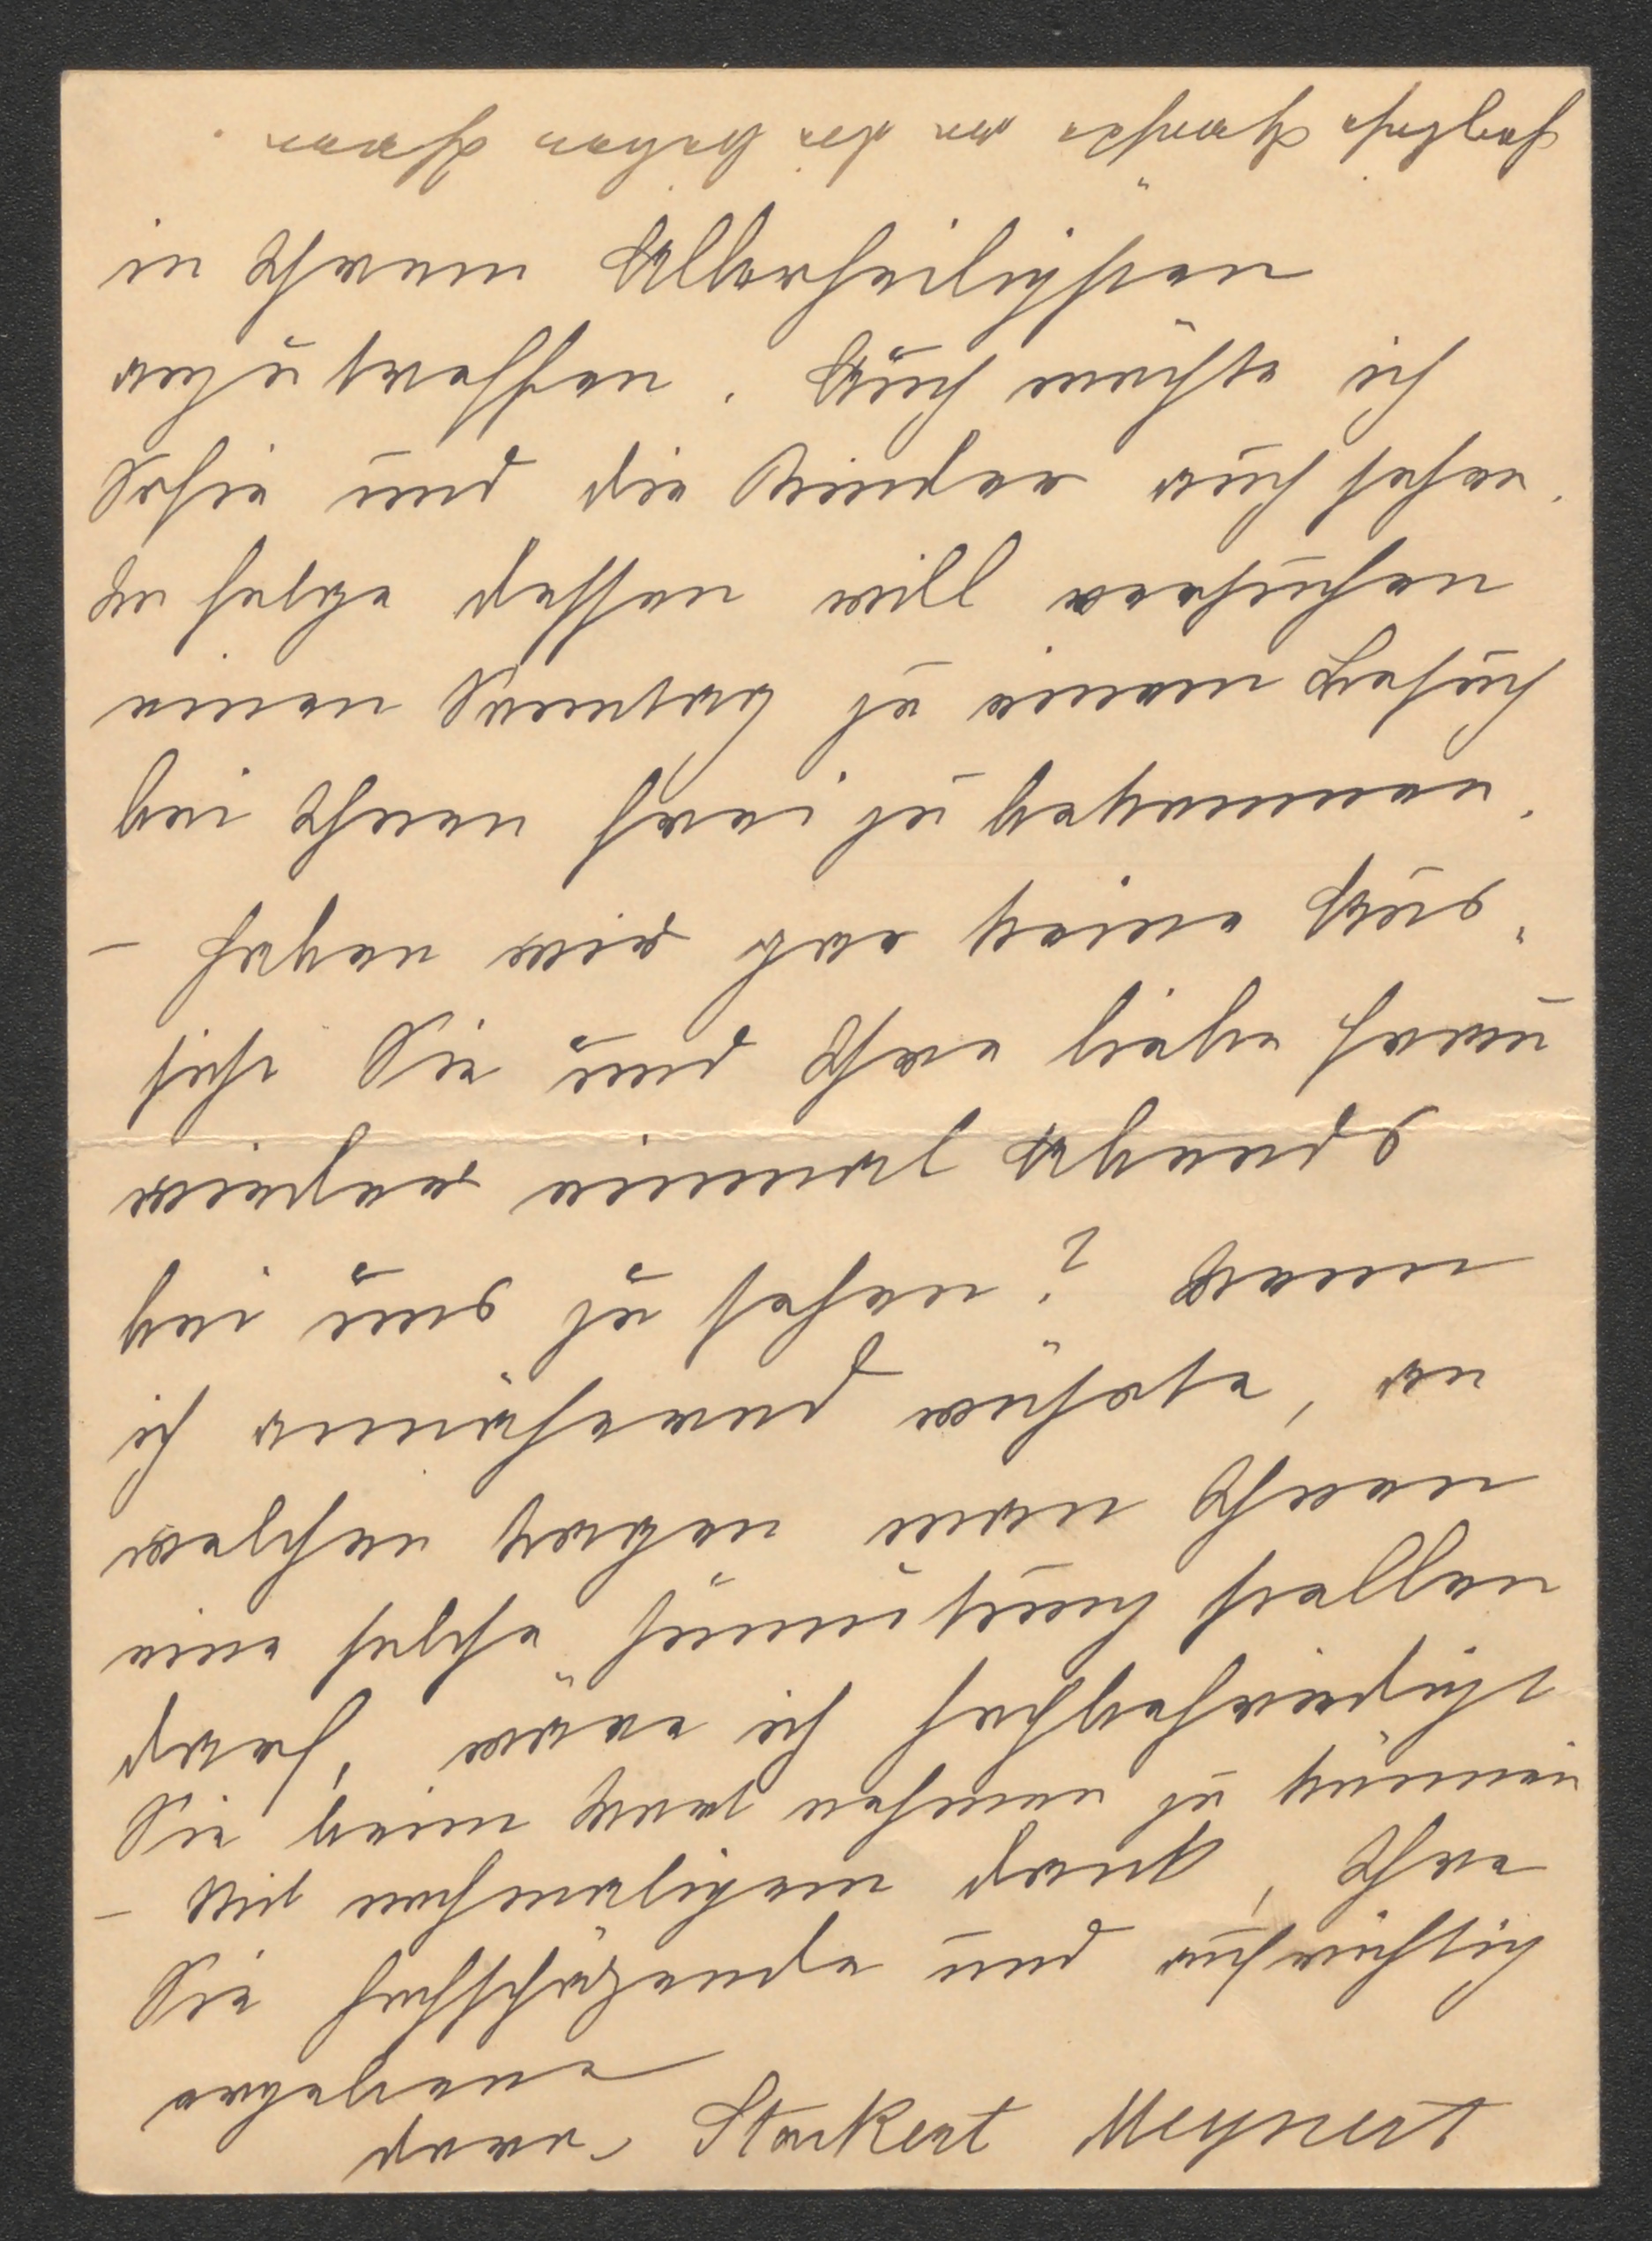 in Ihrem Allerheiligsten
anzutreffen. Auch möchte ich
Sofie und die Kinder auch sehen.
In folge dessen will versuchen
einen Sonntag zu einem Besuch
bei Ihnen frei zu bekommen.
– Haben wir gar keine Aus-
sicht Sie und Ihre liebe Frau
wieder einmal Abends
bei uns zu sehen? Wenn
ich annähernd wüsste, an
welchen Tagen man Ihnen
eine solche Zumutung stellen
darf, wäre ich hochbefriedigt
Sie beim Wort nehmen zu können
– Mit nochmaligem Dank, Ihre
Sie hochschätzende und aufrichtig
ergebene
Dora Stockert Meynert
Herzliche Grüsse an die Frau.